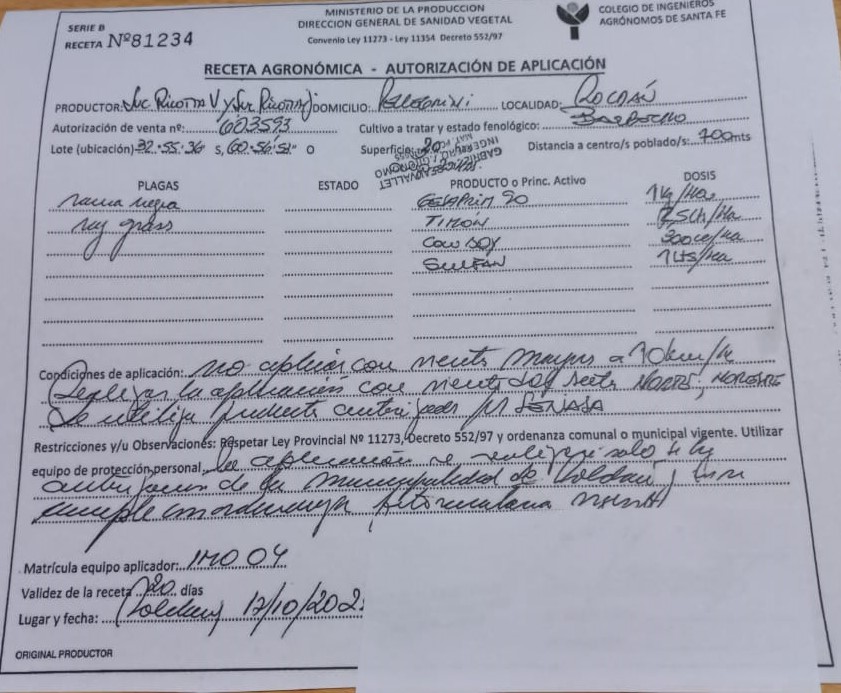 SERIE B
RECETA Nº81234
MINISTERIO DE LA PRODUCCION
DIRECCION GENERAL DE SANIDAD VEGETAL
Convenio Ley 11273 - Ley 11354 Decreto 552/97
COLEGIO DE INGENIEROS
AGRÓNOMOS DE SANTA FE
RECETA AGRONÓMICA - AUTORIZACIÓN DE APLICACIÓN
PRODUCTOR: Suc Ricotta V y Suc Ricotta J DOMICILIO: Pellegrini LOCALIDAD: ROLDÁN
Autorización de venta nº: 603593 Cultivo a tratar y estado fenológico: BARBECHO
Lote (ubicación) 32·55·36· S, 60·56·51" O Superficie: 20 Distancia a centro/s poblado/s: 700 mts
PLAGAS ESTADO PRODUCTO o Princ. Activo DOSIS
rama negra GESAPRIM 90 1 Kg/Ha
ray grass TIMÓN /Ha
300cc/Ha
SULFAN 1 Lts/Ha
Condiciones de aplicación: no aplicar con viento mayor a 10 km/h
Realizar la aplicación con viento del NORTE, NORESTE
Se utiliza producto autorizado por SENASA
Restricciones y/u Observaciones: Respetar Ley Provincial Nº 11273, Decreto 552/97 y ordenanza comunal o municipal vigente. Utilizar
equipo de protección personal, la aplicación se realizará solo
de la Municipalidad de Roldán
cumple con ordenanza fitosanitaria vigente
Matrícula equipo aplicador: 1MO 04
Validez de la receta 20 días
Lugar y fecha: Roldán 17/10/202
ORIGINAL PRODUCTOR